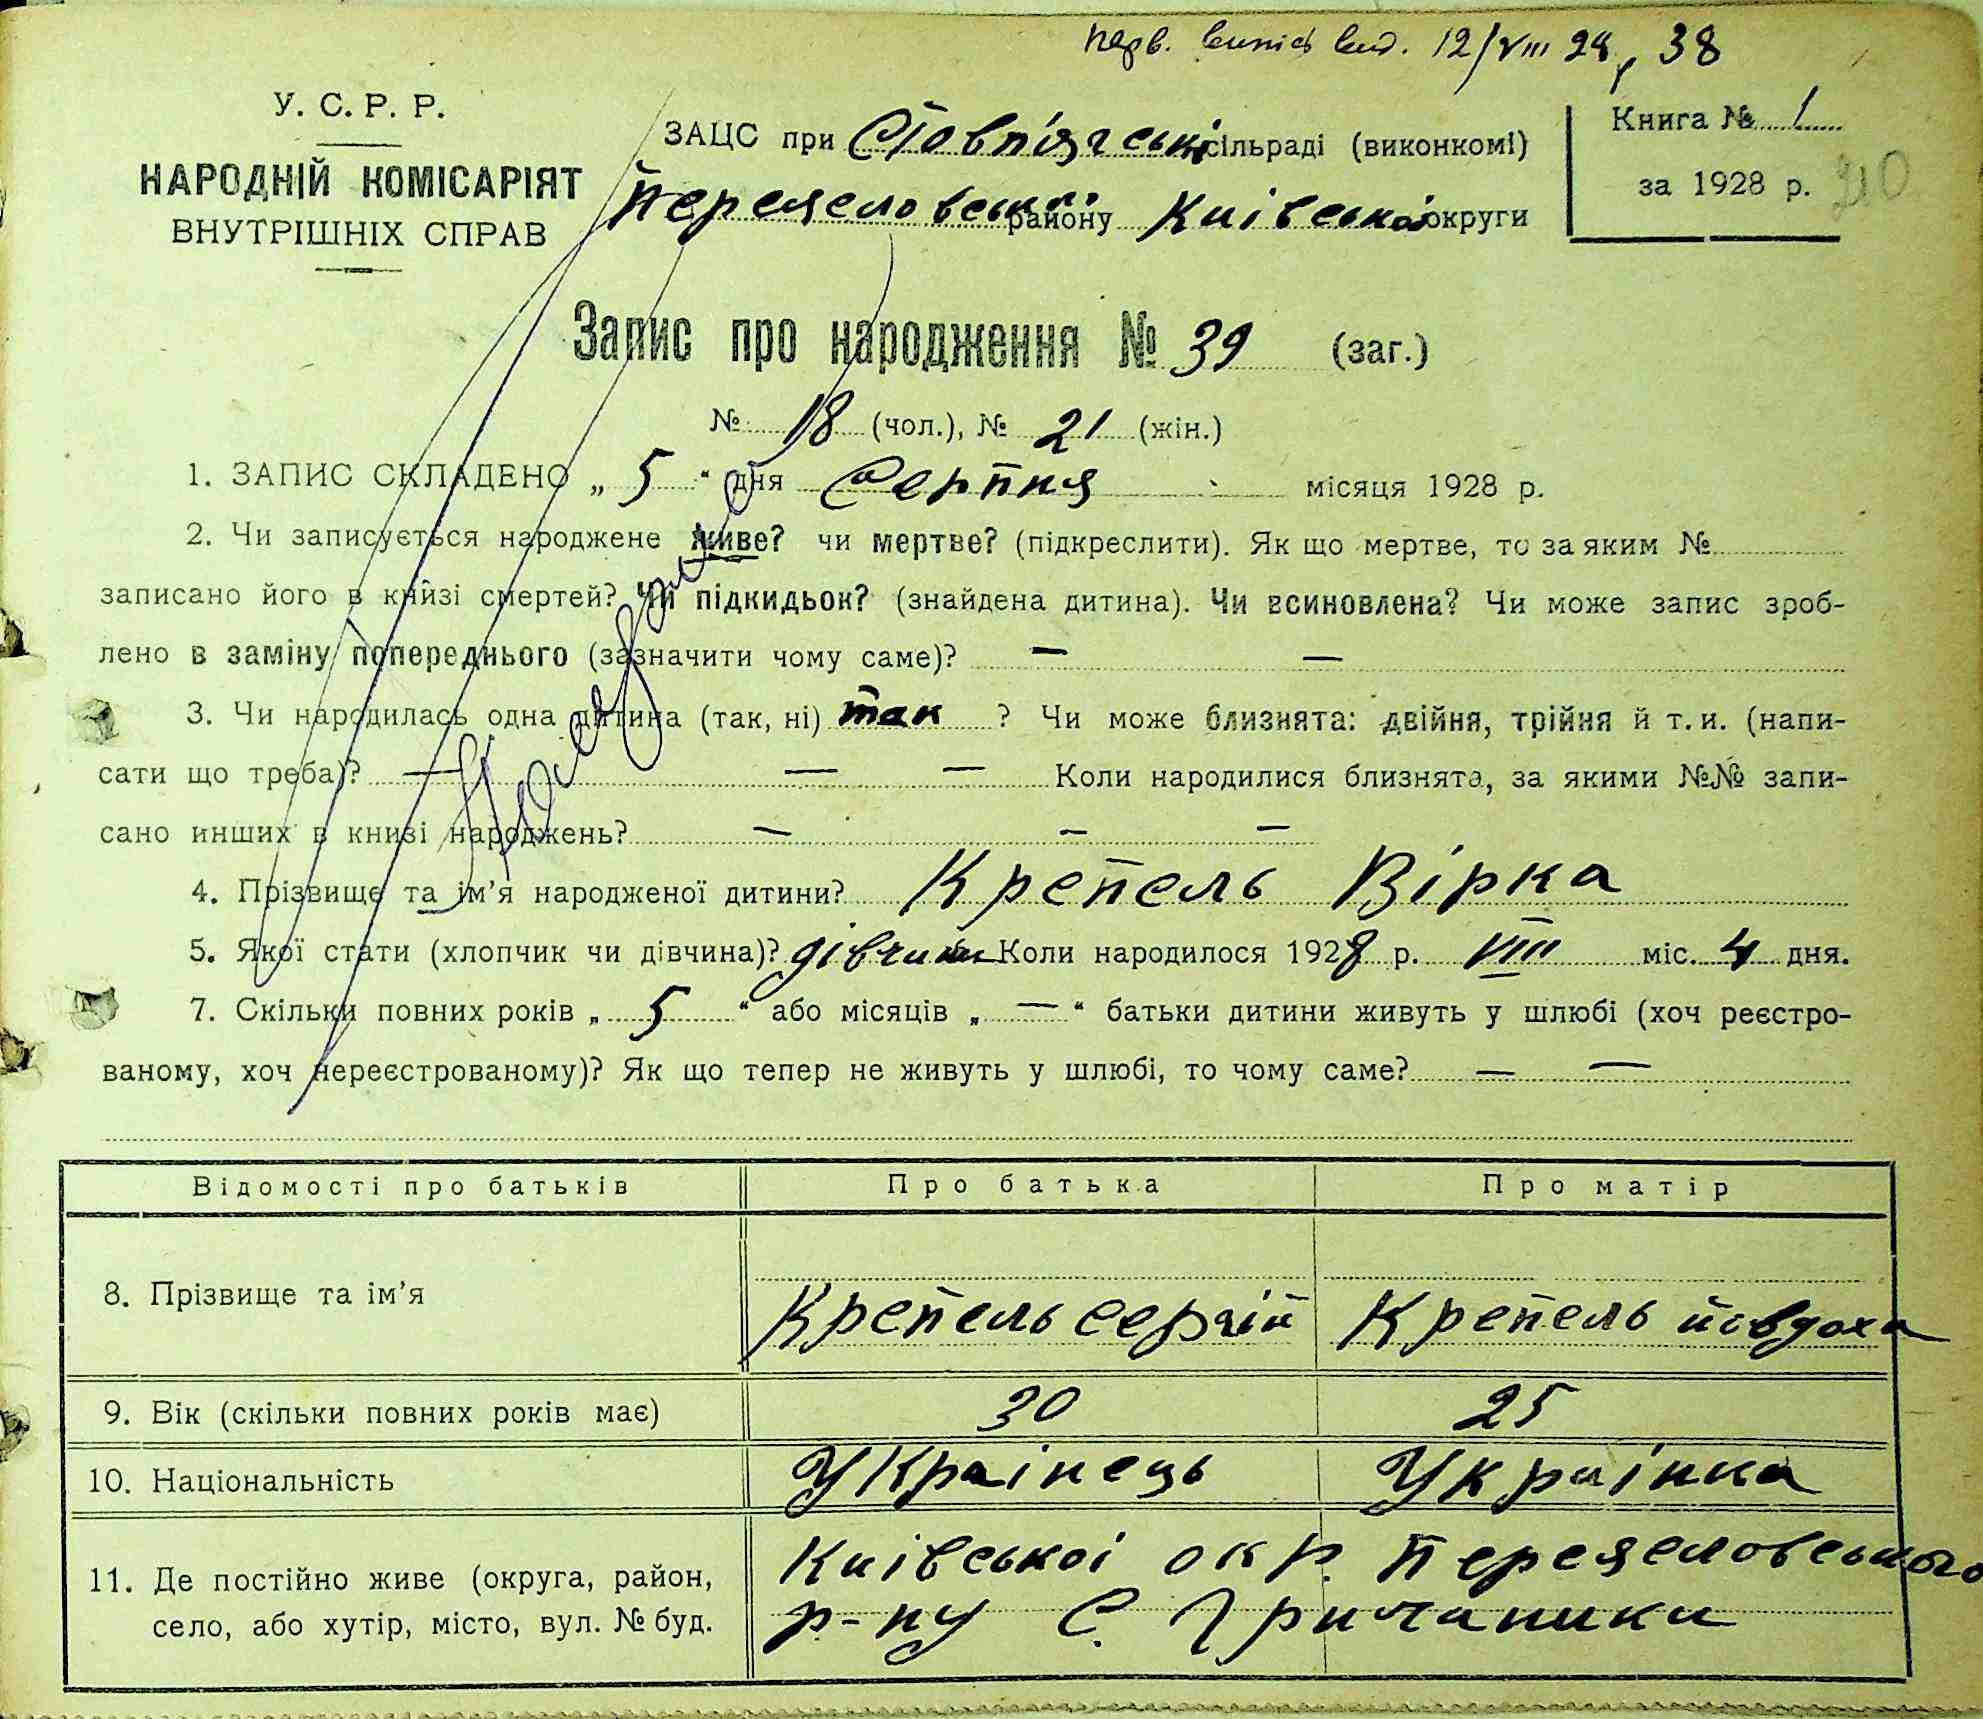 перв. випіс вид. 12/VIII 28 р 38
У. С. Р. Р.
НАРОДНІЙ КОМІСАРІЯТ
ВНУТРІШНІХ СПРАВ
ЗАЦС при Стовп'ягські сільраді (виконкомі)
Переяславської району Київської округи
Книга № 1
за 1928 р. 210
Запис про народження № 39 (заг.)
№ 18 (чол.), № 21 (жін.)
1. ЗАПИС СКЛАДЕНО „ 5 “ дня Серпня місяця 1928 р.
2. Чи записується народжене живе? чи мертве? (підкреслити). Як що мертве, то за яким №
записано його в книзі смертей? Чи підкидьок? (знайдена дитина). Чи всиновлена? Чи може запис зроб-
лено в заміну попереднього (зазначити чому саме)? — —
3. Чи народилась одна дитина (так, ні) так ? Чи може близнята: двійня, трійня й т. и. (напи-
сати що треба)? — — — Коли народилися близнята, за якими №№ запи-
сано инших в книзі народжень? — — —
4. Прізвище та ім’я народженої дитини? Крепель Вірка
5. Якої стати (хлопчик чи дівчина)? дівчина Коли народилося 1928 р. VIII міс. 4 дня.
7. Скільки повних років „ 5 “ або місяців „ — “ батьки дитини живуть у шлюбі (хоч реєстро-
ваному, хоч нереєстрованому)? Як що тепер не живуть у шлюбі, то чому саме? — —
Відомості про батьків Про батька Про матір
8. Прізвище та ім’я Крепель Сергій Крепель Йовдоха
9. Вік (скільки повних років має) 30 25
10. Національність Українець Українка
11. Де постійно живе (округа, район, Київської окр. Переясловського
село, або хутір, місто, вул. № буд. р-ну С.